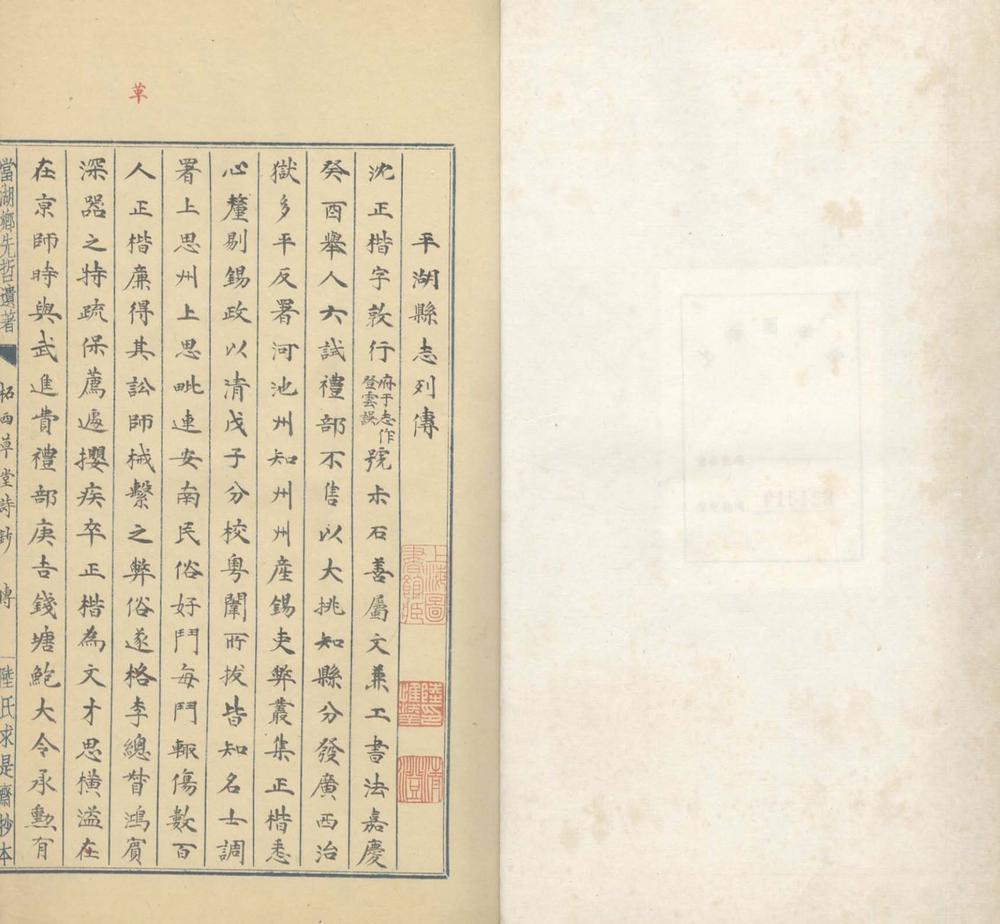 草
平湖縣志列傳
沈正楷字敦行府于志作登雲誤號朩石善屬文兼工書法嘉慶
癸酉舉人六試禮部不售以大挑知縣分發廣西治
獄多平反署河池州知州州產錫吏弊叢集正楷悉
心釐剔錫政以清戊子分校粵闈所拔皆知名士調
署上思州上思毗連安南民俗好鬥每鬥輒傷數百
人正楷廉得其訟師械繫之弊俗遂格李總督鴻賓
深器之特疏保薦遽攖疾卒正楷為文才思橫溢在
在京師時與武進費禮部庚吉錢塘鮑大令承勳有
當湖鄉先哲遺著 柘西草堂詩鈔 傳 陸氏求是齋抄本
上海圖書館藏